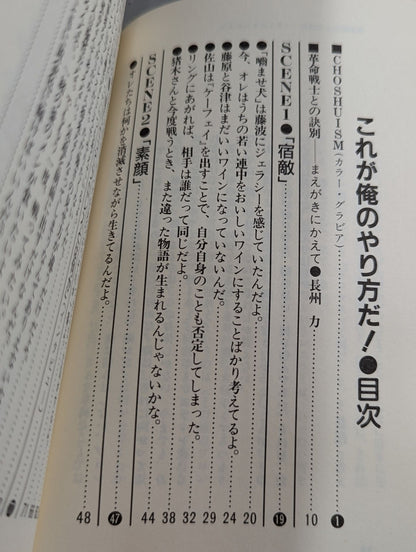 これが俺のやり方だ！●目次
■CHOSHUISM（カラー・グラビア）……❶
■革命戦士との訣別　まえがきにかえて●長州　力……10
SCENE1●「宿敵」……⓳
●「噛ませ犬」は藤波にジェラシーを感じていたんだよ。……20
●今、オレはうちの若い連中をおいしいワインにすることばかり考えてるよ。……24
●藤原と谷津はまだいいワインになっていないんだ。……29
●佐山は『ケーフェイ』を出すことで、自分自身のことも否定してしまった。……32
●リングにあがれば、相手は誰だって同じだよ。……38
●猪木さんと今度戦うとき、また違った物語が生まれるんじゃないかな。……44
SCENE2●「素顔」……㊼
●オレたちは何かを消滅させながら生きてるんだよ。……48